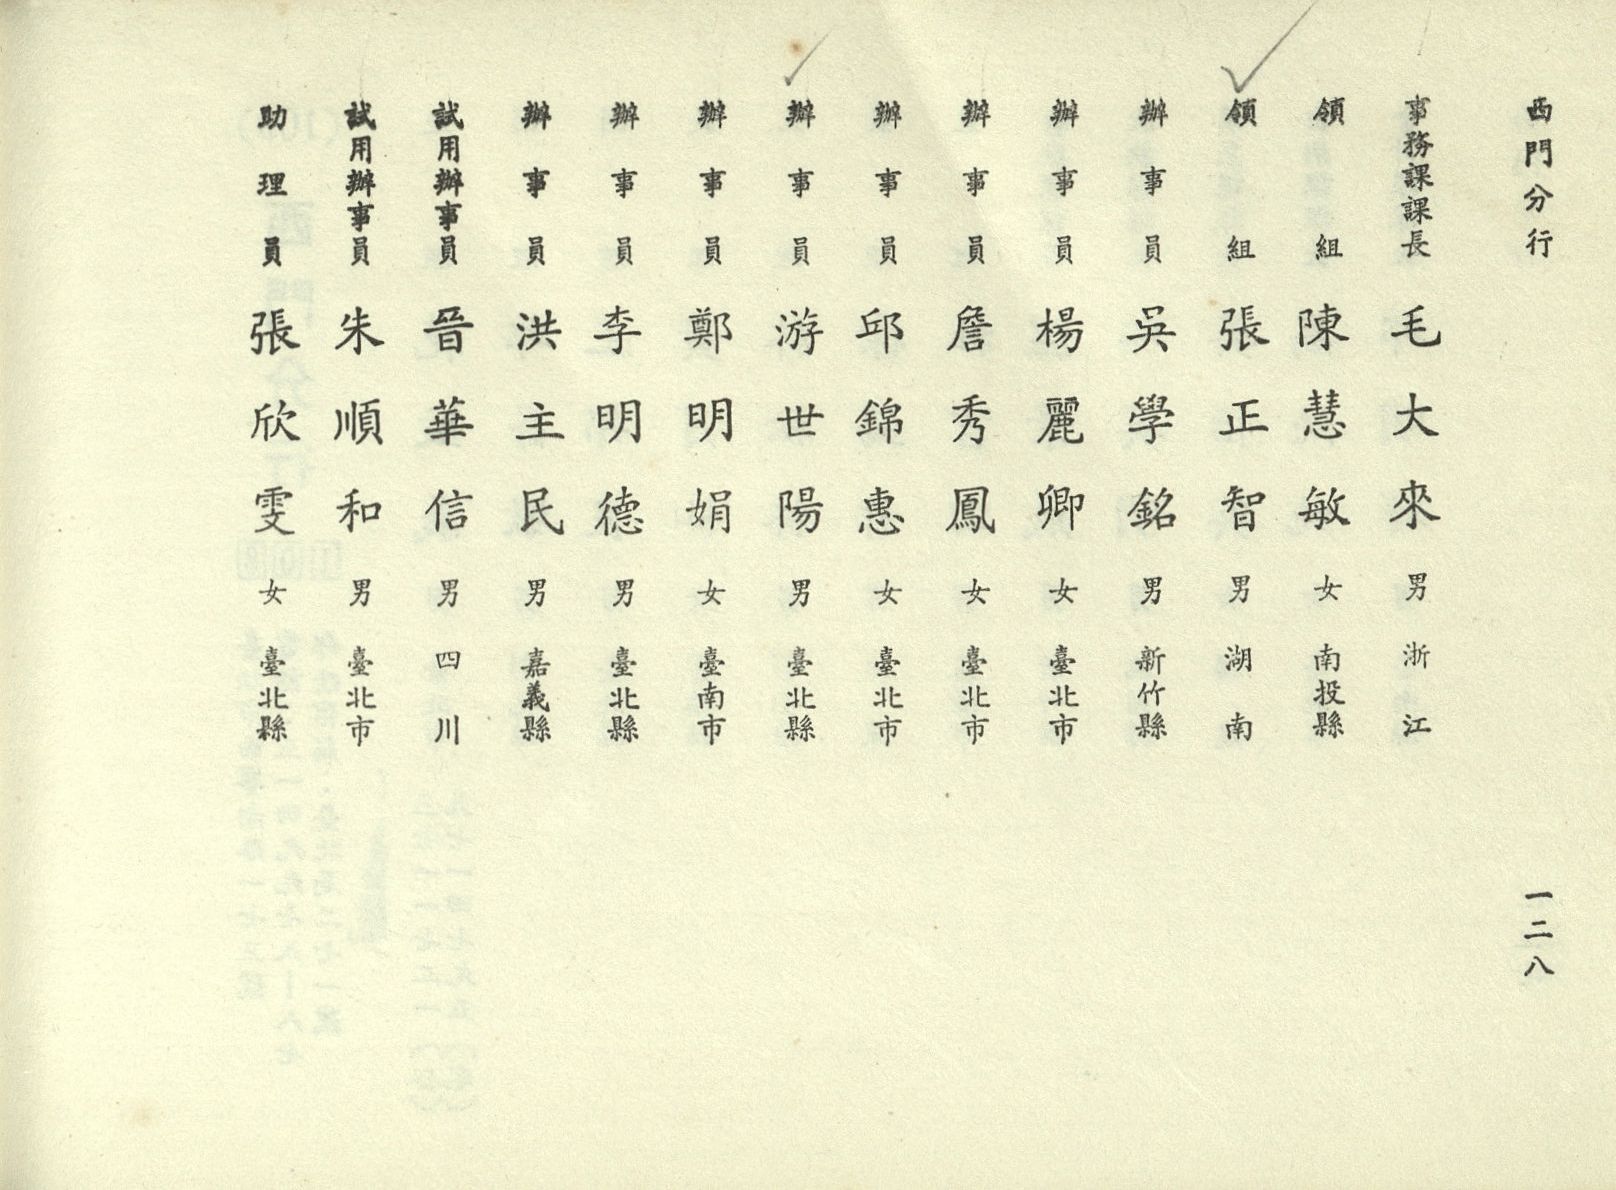 西門分行
事務課課長 毛大來 男 浙江
領組 陳慧敏 女 南投縣
領組 張正智 男 湖南
辦事員 吳學銘 男 新竹縣
辦事員 楊麗卿 女 臺北市
辦事員 詹秀鳳 女 臺北市
辦事員 邱錦惠 女 臺北市
辦事員 游世陽 男 臺北縣
辦事員 鄭明娟 女 臺南市
辦事員 李明德 男 臺北縣
辦事員 洪主民 男 嘉義縣
試用辦事員 晉華信 男 四川
試用辦事員 朱順和 男 臺北市
助理員 張欣雯 女 臺北縣
一二八